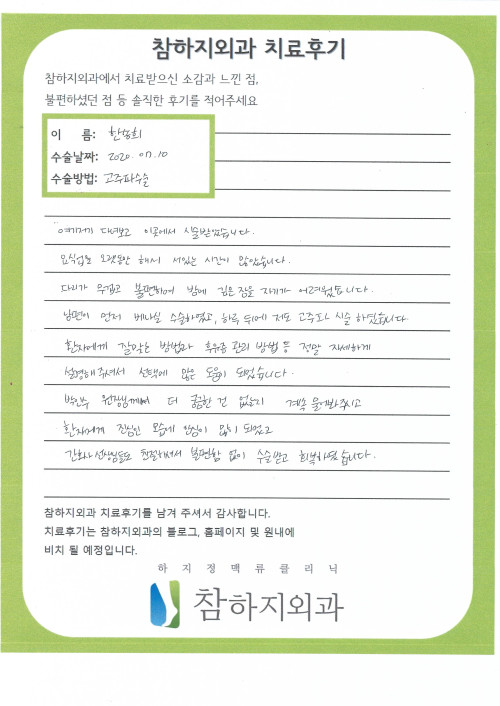 참하지외과 치료후기
참하지외과에서 치료받으신 소감과 느낀 점,
불편하셨던 점 등 솔직한 후기를 적어주세요
이 름:
수술날짜: 2020. 07. 10
수술방법: 고주파수술
여기저기 다녀보고 이곳에서 시술받았습니다.
요식업을 오랫동안 해서 서있는 시간이 많았습니다.
다리가 무겁고 불편하여 밤에 깊은 잠을 자기가 어려웠습니다.
남편이 먼저 베나실 수술하였고, 하루 뒤에 저도 고주파 시술 하였습니다.
환자에게 잘맞는 방법과 후유증 관리 방법 등 정말 자세하게
설명해주셔서 선택에 많은 도움이 되었습니다.
원장님께서 더 궁금한 건 없는지 계속 물어봐주시고
환자에게 진심인 모습에 안심이 많이 되었고
간호사 선생님들도 친절하셔서 불편함 없이 수술받고 회복하였습니다.
참하지외과 치료후기를 남겨 주셔서 감사합니다.
치료후기는 참하지외과의 블로그, 홈페이지 및 원내에
비치 될 예정입니다.
하지정맥류클리닉
참하지외과